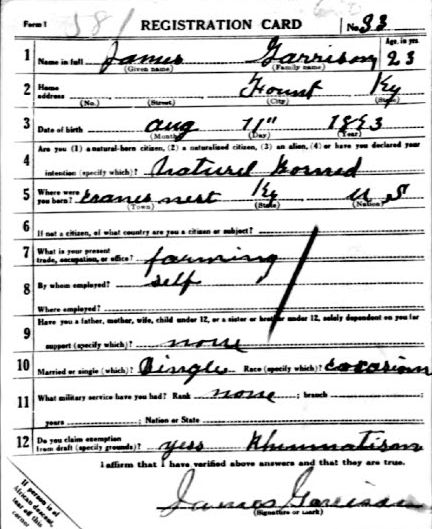 Form 1 REGISTRATION CARD No. 33
1 Name in full James Garrison Age, in yrs. 23
(Given name) (Family name)
2 Home address Fount Ky
(No.) (Street) (City) (State)
3 Date of birth aug 11" 1893
(Month) (Day) (Year)
4 Are you (1) a natural-born citizen, (2) a naturalized citizen, (3) an alien, (4) or have you declared your
intention (specify which)? Naturel Borned
5 Where were you born? cranes nest Ky U S
(Town) (State) (Nation)
6 If not a citizen, of what country are you a citizen or subject?
7 What is your present trade, occupation, or office? farming
8 By whom employed? self
Where employed?
9 Have you a father, mother, wife, child under 12, or a sister or brother under 12, solely dependent on you for
support (specify which)? none
10 Married or single (which)? Single Race (specify which)? cocasian
11 What military service have you had? Rank none ; branch ;
years ; Nation or State
12 Do you claim exemption from draft (specify grounds)? yess Rhumatison
I affirm that I have verified above answers and that they are true.
James Garrison
(Signature or mark)
If person is of
African descent,
tear off this
corner